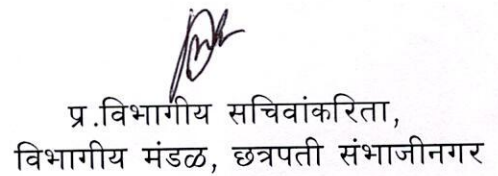 प्र.विभागीय सचिवांकरिता,
विभागीय मंडळ, छत्रपती संभाजीनगर